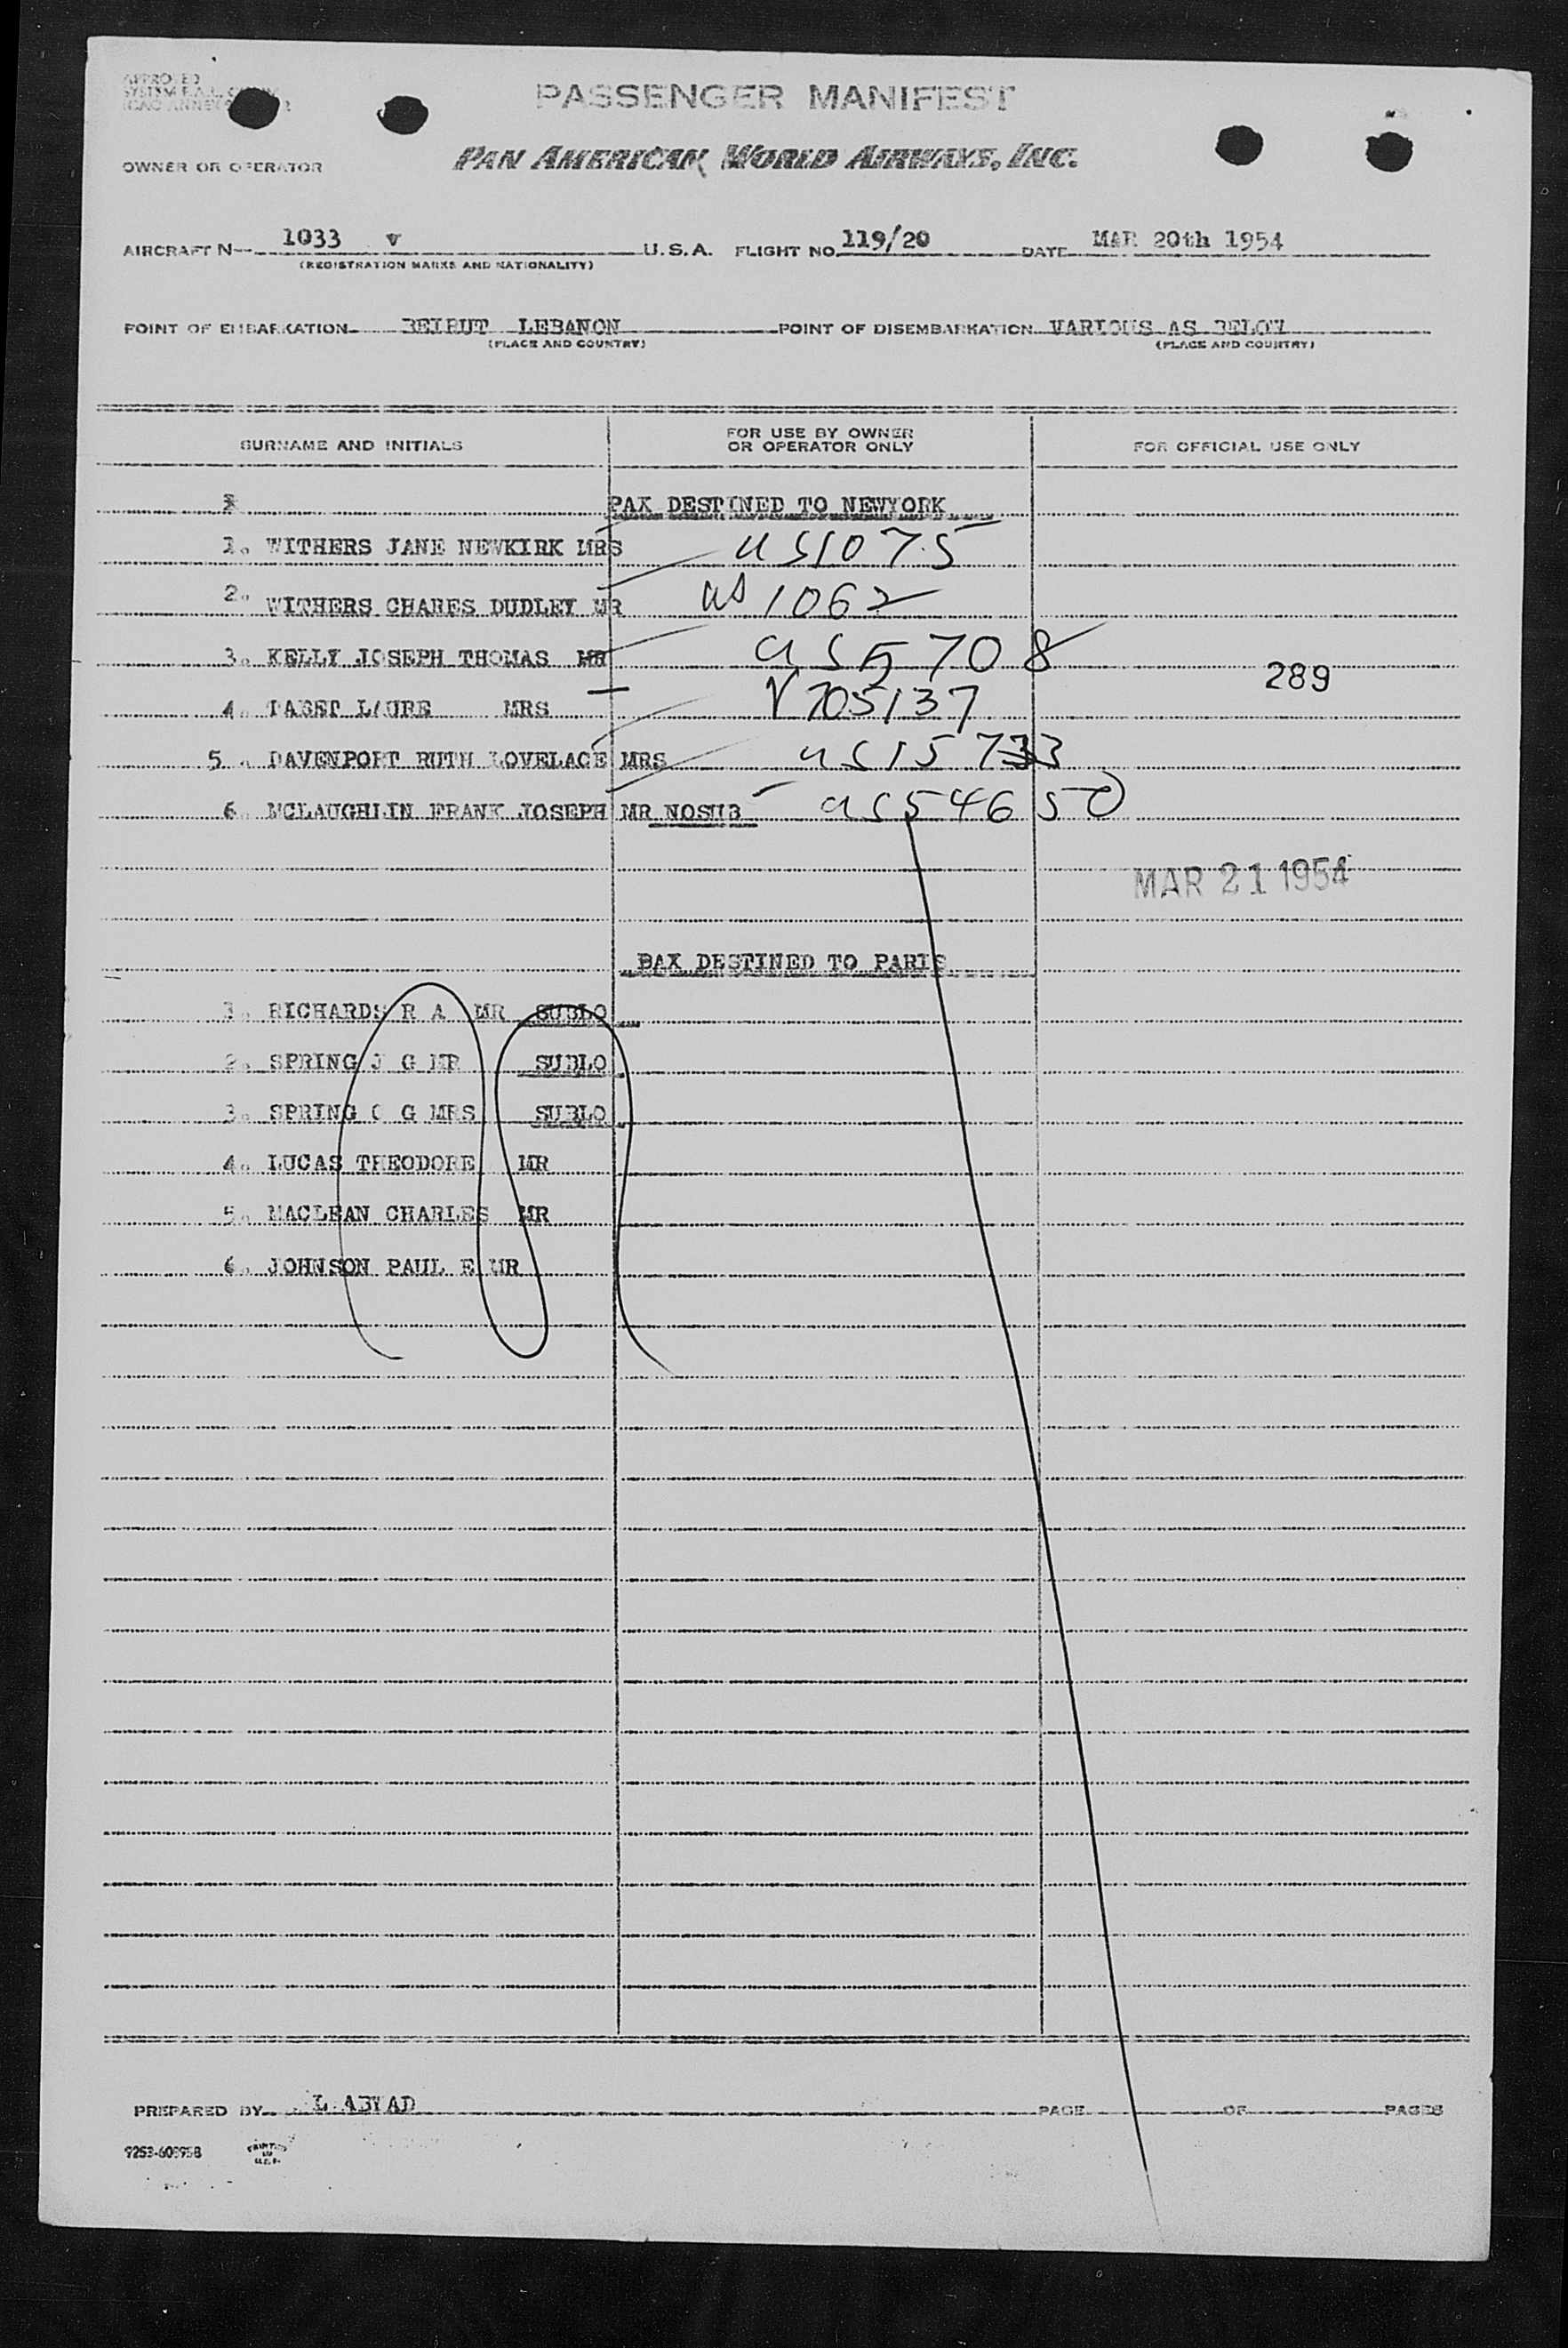 APPROVED
PASSENGER MANIFEST
OWNER OR OPERATOR PAN AMERICAN WORLD AIRWAYS, INC.
AIRCRAFT N— 1033 v U.S.A. FLIGHT NO. 119/20 DATE MAR 20th 1954
(REGISTRATION MARKS AND NATIONALITY)
POINT OF EMBARKATION BEIRUT LEBANON POINT OF DISEMBARKATION VARIOUS AS BELOW
(PLACE AND COUNTRY) (PLACE AND COUNTRY)
SURNAME AND INITIALS FOR USE BY OWNER OR OPERATOR ONLY FOR OFFICIAL USE ONLY
PAX DESTINED TO NEWYORK
1. WITHERS JANE NEWKIRK MRS US1075
2. WITHERS CHARES DUDLEY MR US 1062
3. KELLY JOSEPH THOMAS MR US5708
289
4. LAURE MRS V705137
5. DAVENPORT RUTH LOVELACE MRS US15733
6. MCLAUGHLIN FRANK JOSEPH MR NOSUB US54650
MAR 21 1954
BAX DESTINED TO PARIS
1. RICHARDS R A MR SUBLO
2. SPRING J G MR SUBLO
3. SPRING C G MRS SUBLO
4. LUCAS THEODORE MR
5. MACLEAN CHARLES MR
6. JOHNSON PAUL E MR
PREPARED BY L ABYAD PAGE OF PAGES
PRINTED IN U.S.A.